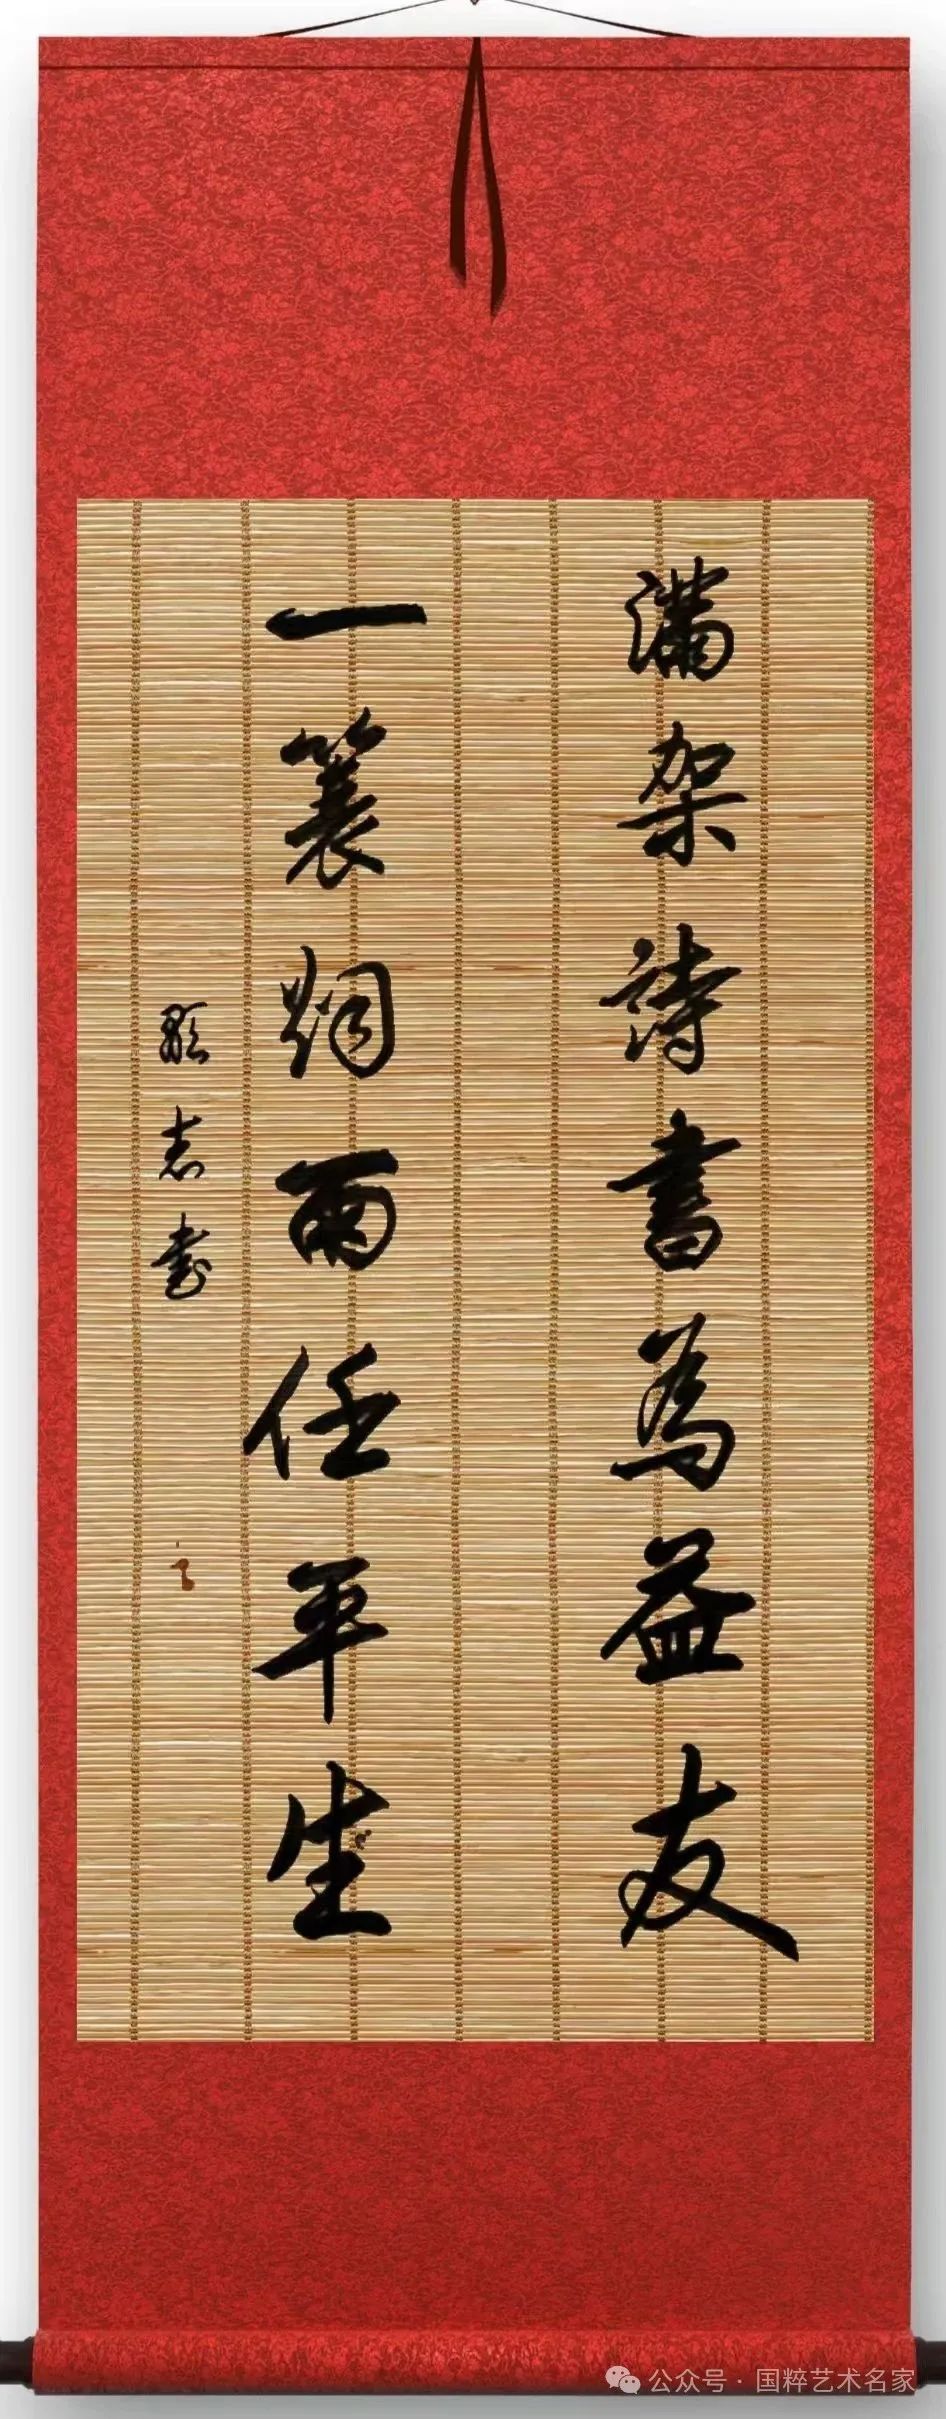 滿架詩書為益友
一簑烟雨任平生
顯志書
公众号 · 国粹艺术名家